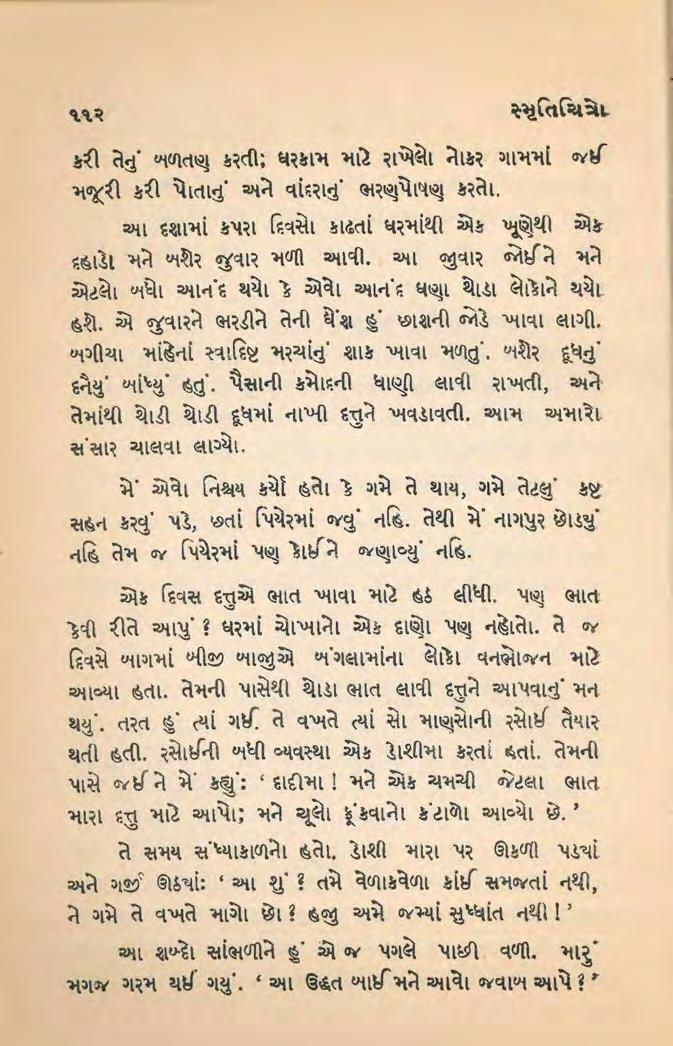 ૧૧૨ સ્મૃતિચિત્રો
કરી તેનું બળતણ કરતી; ઘરકામ માટે રાખેલો નોકર ગામમાં જઈ
મજૂરી કરી પોતાનું અને વાંદરાનું ભરણપોષણ કરતો.
આ દશામાં કપરા દિવસો કાઢતાં ઘરમાંથી એક ખૂણેથી એક
દહાડો મને બશેર જુવાર મળી આવી. આ જુવાર જોઈને મને
એટલો બધો આનંદ થયો કે એવો આનંદ ઘણા થોડા લોકોને થયો
હશે. એ જુવારને ભરડીને તેની ઘેંશ હું છાશની જોડે ખાવા લાગી.
બગીચા માંહેનાં સ્વાદિષ્ટ મરચાંનું શાક ખાવા મળતું. બશેર દૂધનું
દનૈયું બાંધ્યું હતું. પૈસાની કમોદની ધાણી લાવી રાખતી, અને
તેમાંથી થોડી થોડી દૂધમાં નાખી દત્તુને ખવડાવતી. આમ અમારો
સંસાર ચાલવા લાગ્યો.
મેં એવો નિશ્ચય કર્યો હતો કે ગમે તે થાય, ગમે તેટલું કષ્ટ
સહન કરવું પડે, છતાં પિયેરમાં જવું નહિ. તેથી મેં નાગપુર છોડયું
નહિ તેમ જ પિયેરમાં પણ કોઈને જણાવ્યું નહિ.
એક દિવસ દત્તુએ ભાત ખાવા માટે હઠ લીધી. પણ ભાત
કેવી રીતે આપું? ઘરમાં ચોખાનો એક દાણો પણ નહોતો. તે જ
દિવસે બાગમાં બીજી બાજુએ બંગલામાંના લોકો વનભોજન માટે
આવ્યા હતા. તેમની પાસેથી થોડા ભાત લાવી દત્તુને આપવાનું મન
થયું. તરત હું ત્યાં ગઈ. તે વખતે ત્યાં સો માણસોની રસોઈ તૈયાર
થતી હતી. રસોઈની બધી વ્યવસ્થા એક ડોશીમા કરતાં હતાં. તેમની
પાસે જઈને મેં કહ્યું: ‘દાદીમા! મને એક ચમચી જેટલા ભાત
મારા દત્તુ માટે આપો; મને ચૂલો ફૂંકવાનો કંટાળો આવ્યો છે.’
તે સમય સંધ્યાકાળનો હતો. ડોશી મારા પર ઊકળી પડ્યાં
અને ગર્જી ઊઠ્યાં: ‘આ શું? તમે વેળાકવેળા કાંઈ સમજતાં નથી,
ને ગમે તે વખતે માગો છો? હજુ અમે જમ્યાં સુધ્ધાંત નથી!’
આ શબ્દો સાંભળીને હું એ જ પગલે પાછી વળી. મારું
મગજ ગરમ થઈ ગયું. ‘આ ઉદ્ધત બાઈ મને આવો જવાબ આપે?’